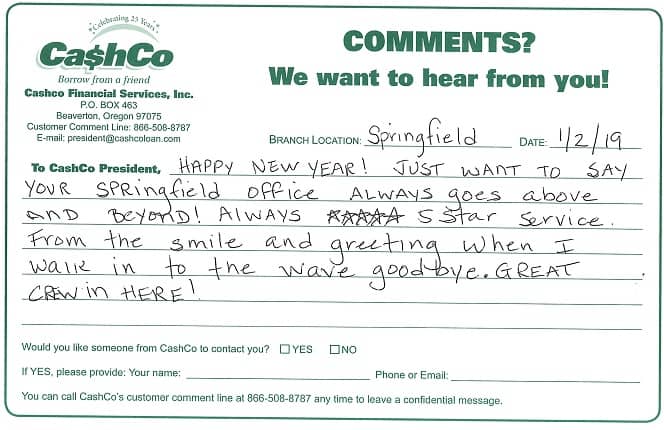 Celebrating 25 Years
Ca$hCo
Borrow from a friend
Cashco Financial Services, Inc.
P.O. BOX 463
Beaverton, Oregon 97075
Customer Comment Line: 866-508-8787
E-mail: president@cashcoloan.com
COMMENTS?
We want to hear from you!
BRANCH LOCATION: Springfield DATE: 1/2/19
To CashCo President, HAPPY NEW YEAR! JUST WANT TO SAY
YOUR SPRingfield OFFICE ALWAYS goes above
AND BEYOND! ALWAYS ☆☆☆☆☆ 5 Star Service.
From the smile and greeting when I
walk in to the wave goodbye. GREAT
CREW in HERE!
Would you like someone from CashCo to contact you? ☐ YES ☐ NO
If YES, please provide: Your name: Phone or Email:
You can call CashCo's customer comment line at 866-508-8787 any time to leave a confidential message.